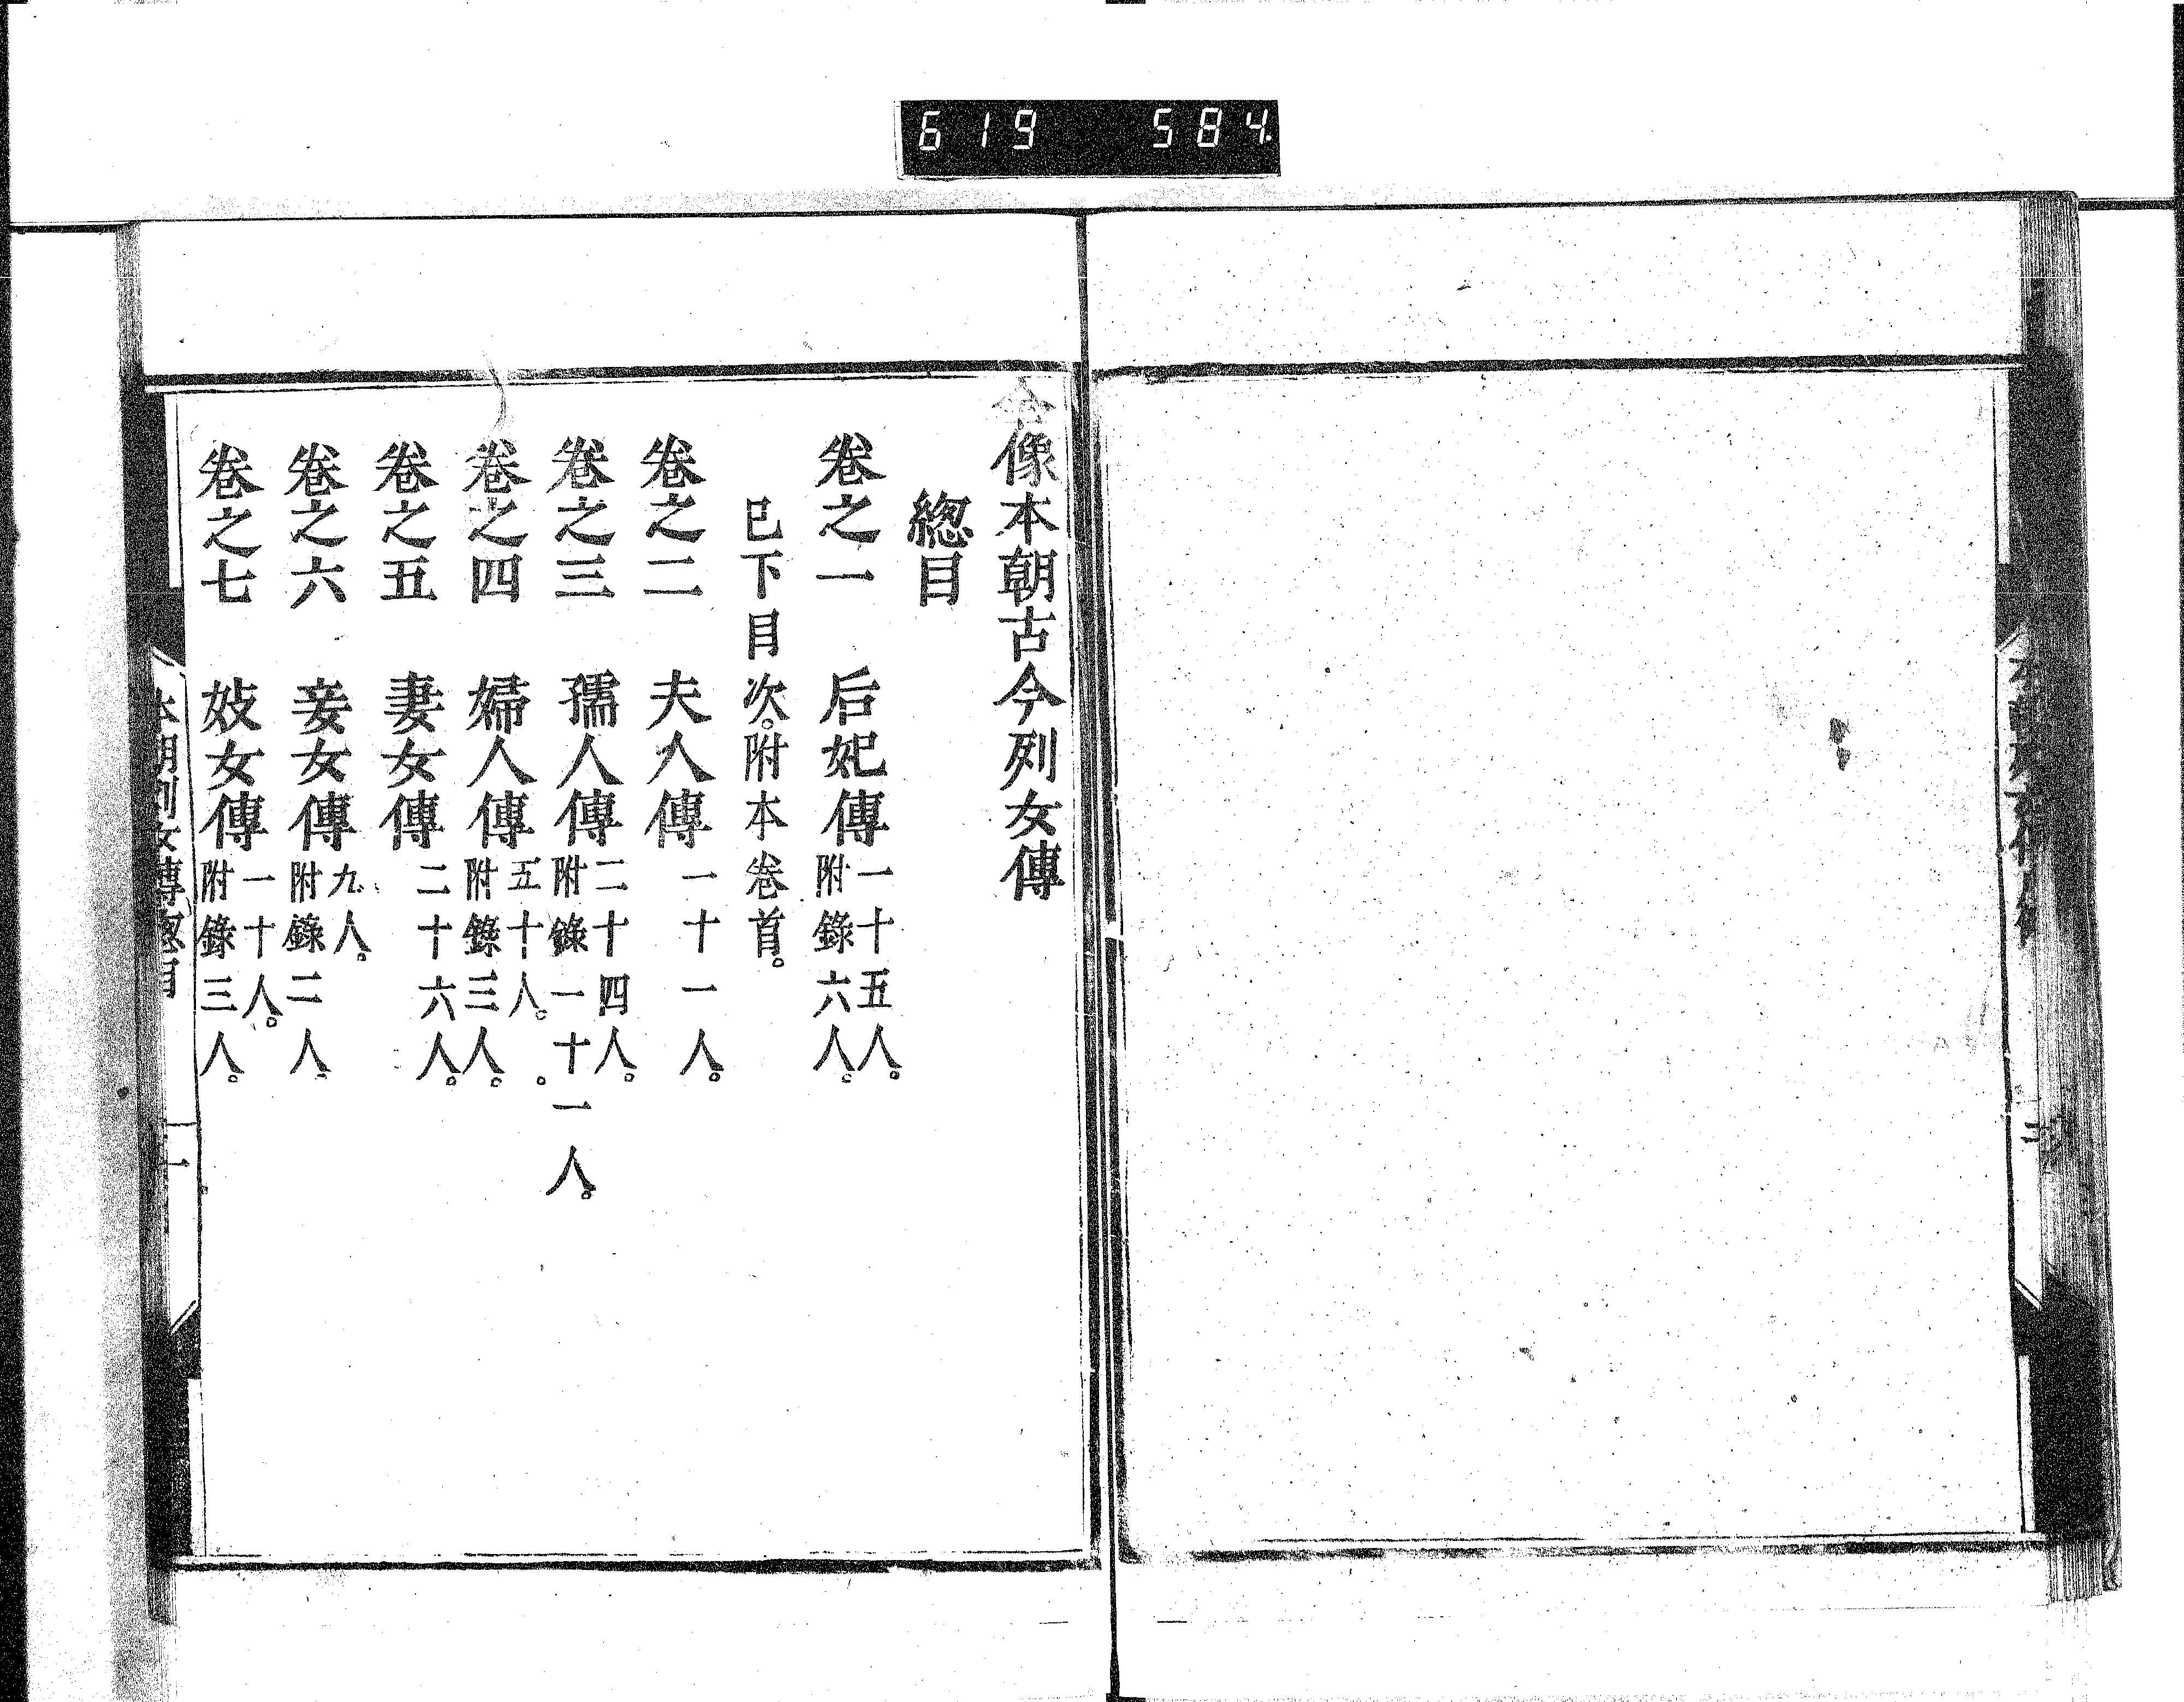 619 584
像本朝古今列女傳
總目
卷之一 后妃傳 一十五人。附錄六人。
已下目次。附本卷首。
卷之二 夫人傳 一十一人。
卷之三 孺人傳 二十四人。附錄一十一人。
卷之四 婦人傳 五十人。附錄三人。
卷之五 妻女傳 二十六人。
卷之六 妾女傳 九人。附錄二人
卷之七 妓女傳 一十人。附錄三人。
本朝列女傳總目 一